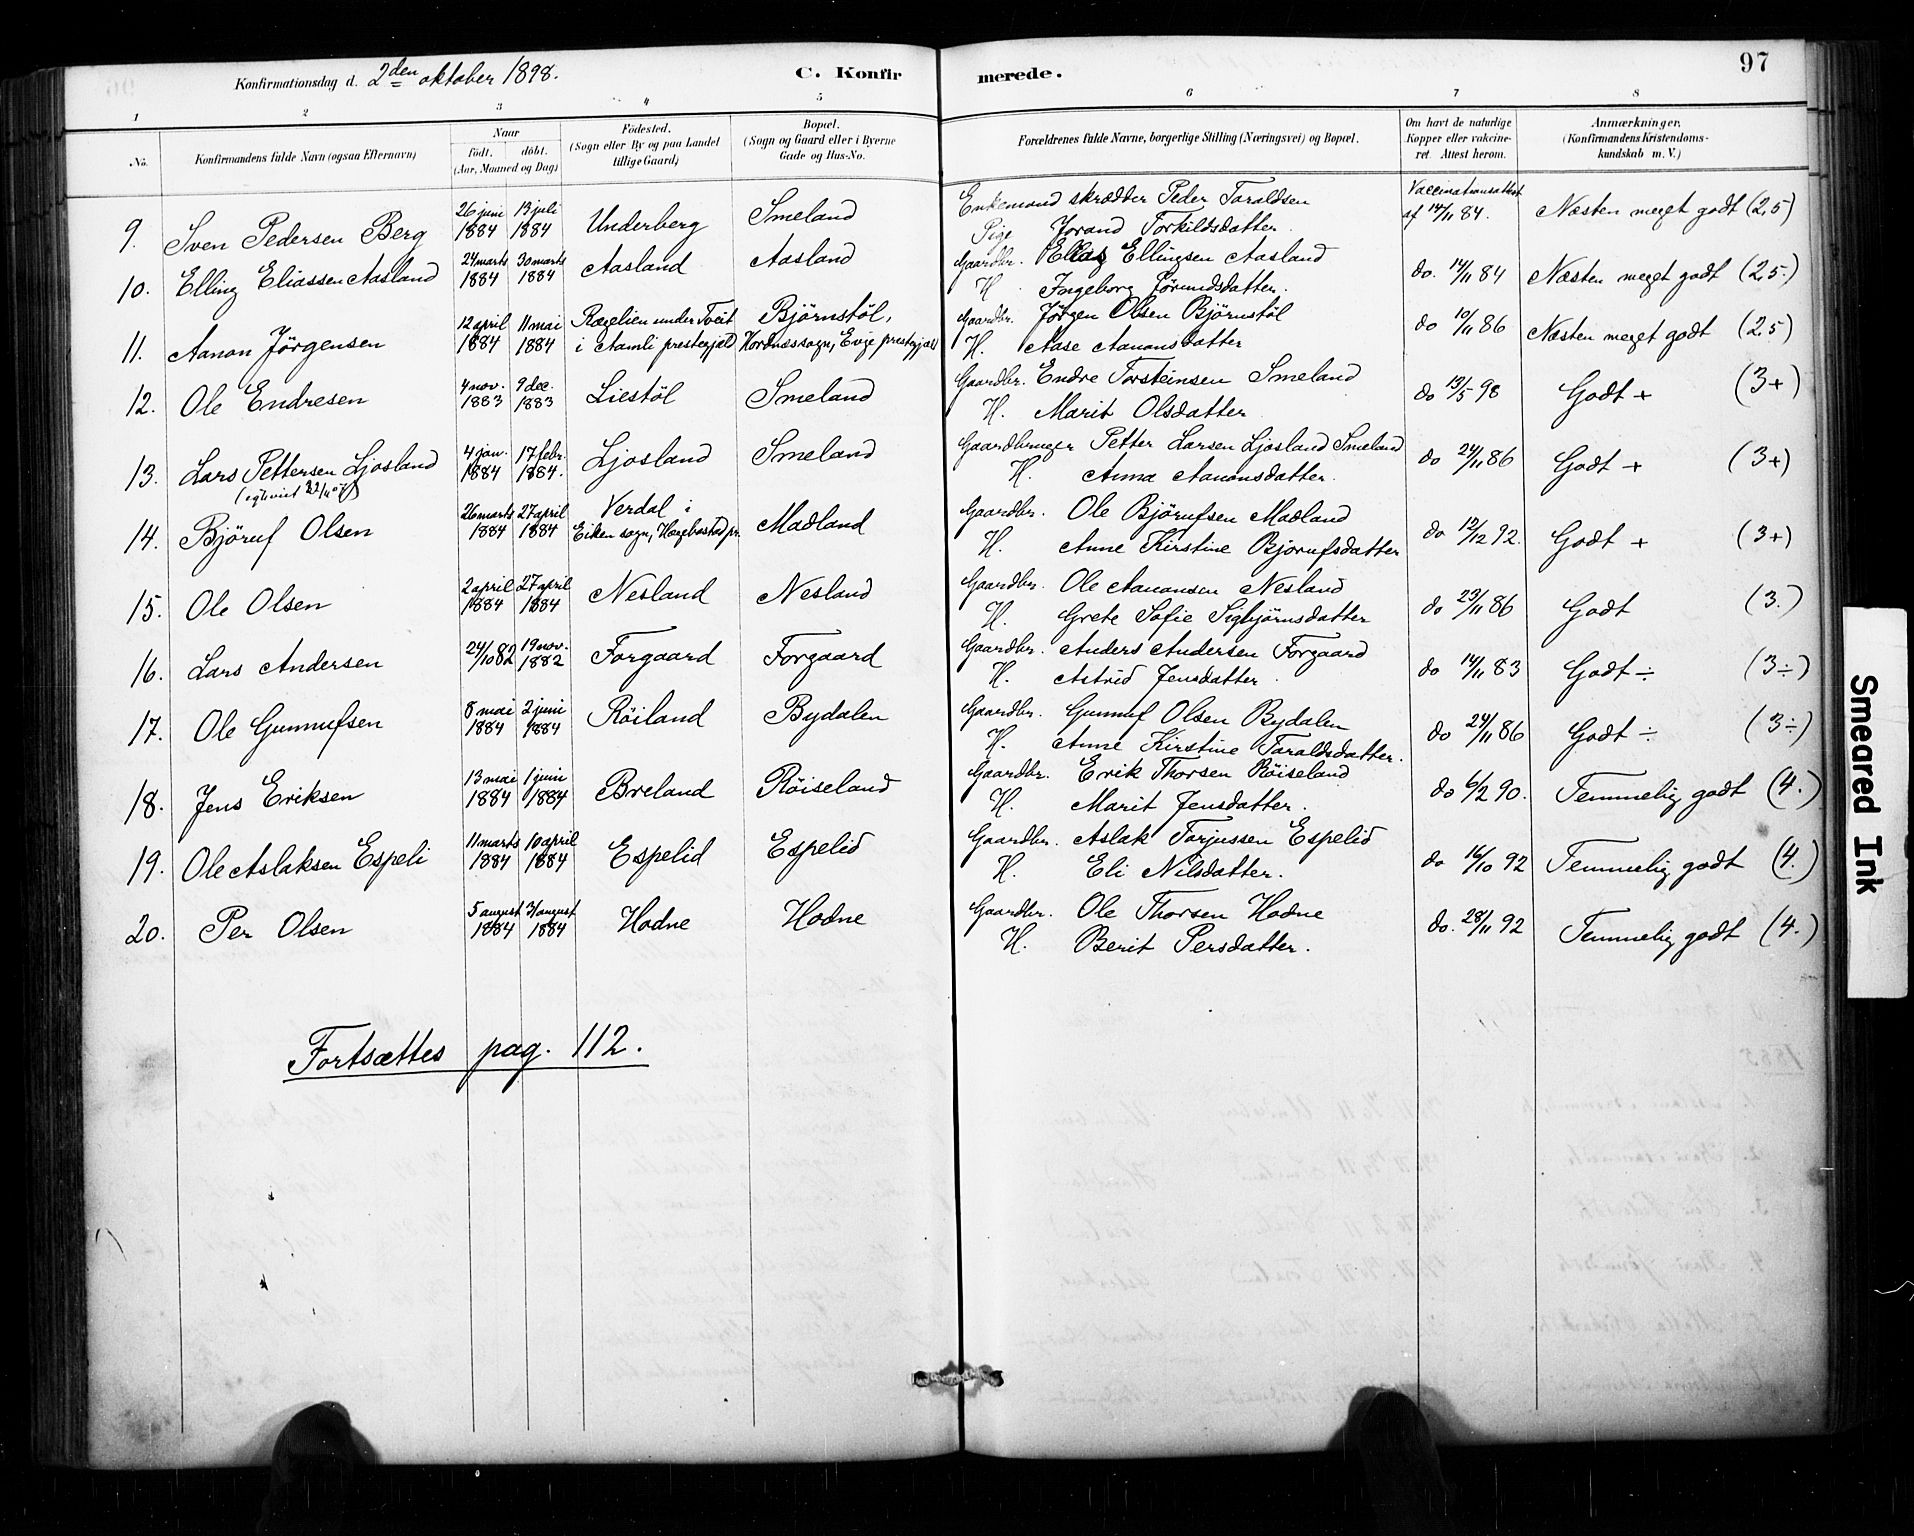 97
Konfirmationsdag d. 2den oktober 1898. C. Konfirmerede.
1 2 3 4 5 6 7 8
No. Konfirmandens fulde Navn (ogsaa Efternavn) Naar født. døbt. (Aar, Maaned og Dag) Fødested. (Sogn eller By og paa Landet tillige Gaard) Bopæl. (Sogn og Gaard eller i Byerne Gade og Hus-No. Forældrenes fulde Navne, borgerlige Stilling (Næringsvei) og Bopæl. Om havt de naturlige Kopper eller vakcineret Attest herom. Anmærkninger. (Konfirmandens Kristendomskundskab m. V.)
9. Sven Pedersen Berg 26 juni 1884 13 juli 1884 Underberg Smeland Enkemand skrædder Peder Taraldsen Vaccinationsattest af 14/11 84. Næsten meget godt (2,5)
Pige Jorand Torkildsdatter
10. Elling Eliassen Aasland 24 marts 1884 30 marts 1884 Aasland Aasland Gaardbr. Elias Ellingsen Aasland do. 14/11 84 Næsten meget godt (2,5)
H. Ingeborg Jörundsdatter.
11. Aanon Jörgensen 12 april 1884 11 mai 1884 Rægelien under Tveit i Aamli prestegjæld Björnstöl, Hordnæssogn, Evje prestgjæld Gaardbr. Jörgen Olsen Björnstöl do 10/11 86 Næsten meget godt (2,5)
H. Aase Aanonsdatter
12. Ole Endresen 4 nov. 1883 9 dec. 1883 Liestöl Smeland Gaardbr. Endre Torsteinsen Smeland do 13/5 98 Godt + (3+)
H. Marit Olsdatter
13. Lars Pettersen Ljosland 4 jan. 1884 17 febr. 1884. Ljosland Smeland Gaardbruger Petter Larsen Ljosland Smeland do 24/11 86 Godt + (3+)
H. Anna Aanonsdatter.
14. Björuf Olsen 26 marts 1884 27 april 1884 Verdal i Eiken sogn, Hægebostad pr. Madland Gaardbr. Ole Björufsen Madland do 12/12 92. Godt + (3+)
H. Anne Kirstine Bjorufsdatter
15. Ole Olsen 2 april 1884 27 april 1884 Nesland Nesland Gaardbr. Ole Aanonsen Nesland do 23/11 86 Godt (3.)
H. Grete Sofie Sigbjörnsdatter
16. Lars Andersen 24/10 82 19 nov. 1882 Forgaard Forgaard Gaardbr. Anders Andersen Forgaard do 14/11 83 Godt ÷ (3÷)
H. Astrid Jensdatter.
17. Ole Gunnufsen 8 mai 1884 2 juni 1884 Röiland Bydalen Gaardbr. Gunnuf Olsen Bydalen do 24/11 86 Godt ÷ (3÷)
H. Anne Kirstine Taraldsdatter.
18. Jens Eriksen 13 mai 1884 1 juni 1884 Breland Röiseland Gaardbr. Erik Thorsen Röiseland do 6/2 90. Temmelig godt (4.)
H. Marit Jensdatter.
19. Ole Aslaksen Espeli 11 marts 1884 10 april 1884 Espelid Espelid Gaardbr. Aslak Torjussen Espelid do 16/10 92 Temmelig godt (4.)
H. Eli Nilsdatter.
20. Per Olsen 5 august 1884 31 august 1884 Hodne Hodne Gaardbr. Ole Thorsen Hodne do. 28/11 92 Temmelig godt (4.)
H. Berit Persdatter.
Fortsættes pag. 112.
Smeared Ink